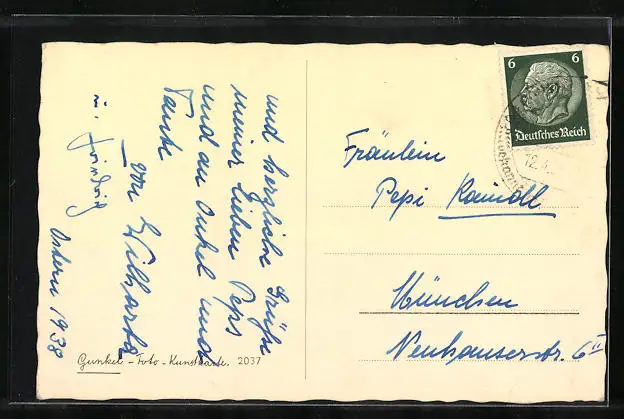 und herzliche Grüße
meiner lieben Peps
und an Onkel und
Tante
von
u. Friedrich
Ostern 1938
Gunkel - Foto - Kunstkarte. 2037
6 6
Deutsches Reich
12.4.
Fräulein
Pepi Kaindl
München
Neuhauserstr. 6 II